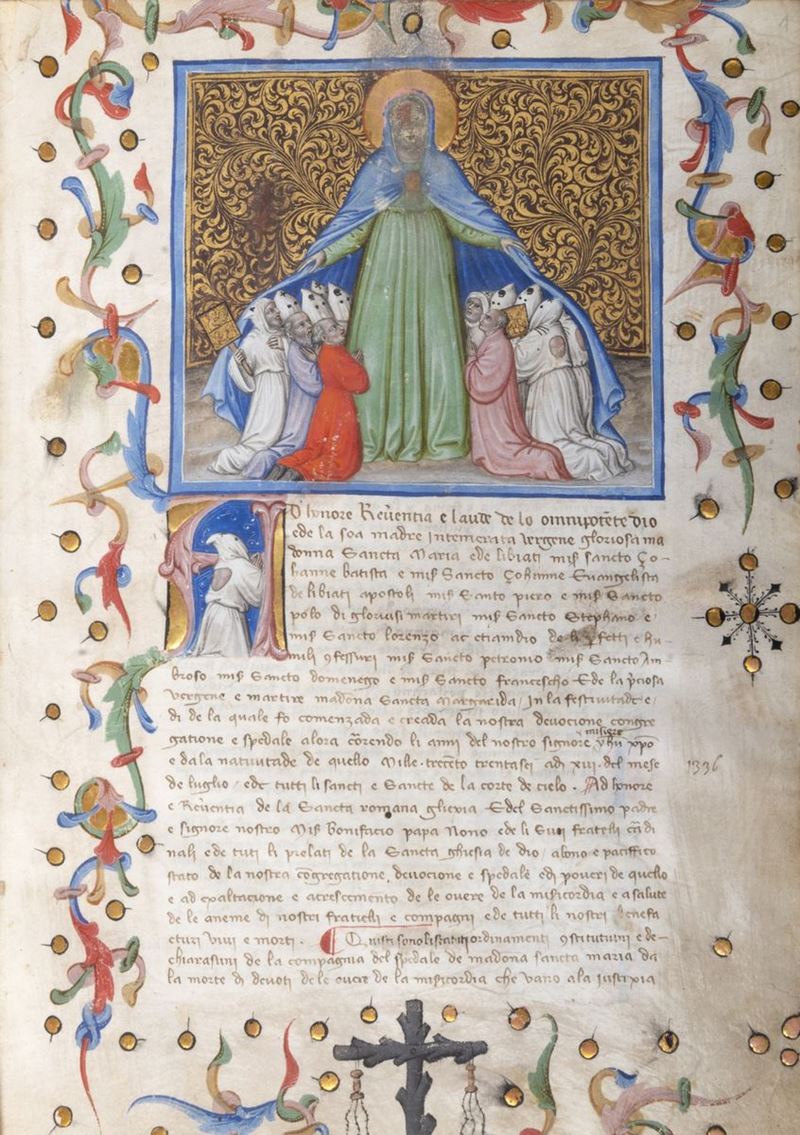 AD honore Reverentia e laude de lo omnipotẽte dio
e de la soa madre intemerata vergene gloriosa ma
donna Sancta Maria e de li biati misẽ sancto ço-
hanne batista e misẽ Sancto Çohanne Evangelista
de li biati apostoli misẽ Santo piero e misẽ Sancto
polo di gloriusi martiri misẽ Sancto Stephano e
misẽ Sancto lorenzo ac etiamdio de fetti e hu-
mili ɔfessuri misẽ Sancto petronio misẽ Sancto Am
broso misẽ Sancto domenego e misẽ Sancto francescho E de la p̃ciosa
vergene e martire madõna Sancta Margarida / In la festivitade e /
di de la quale fo comenzada e creada la nostra devocione congre
gatione e spedale alora cõrendo li anni del nostro signore misiere yhũ xp̃o
e da la nativitade de quello Mille treceto trentasei adi xiii del mese 1336
de luglio / e de tutti li sancti e Sancte de la corte de cielo . Ad honore
e Reverentia de la Sancta romana ghiexia E del Sanctissimo padre
e signore nostro Misẽ Bonifacio papa Nono e de li Suoi fratelli cardi
nali e de tuti li prelati de la Sancta ghiesia de dio / a bono e paciffico
stato de la nostra cõgregatione, devocione e spedale e di poveri de quello
e ad exaltacione e acrescimento de le overe de la misericordia e a salute
de le aneme di nostri fratielli e compagni e de tutti li nostri benefa
cturi vivi e morti . Quisti sono li statuti ordinamenti ɔstitutiuni e de-
chiarasiuni de la compagnia del spedale de madona sancta maria da
la morte di devoti de le overe de la misericordia che vano a la iustixia